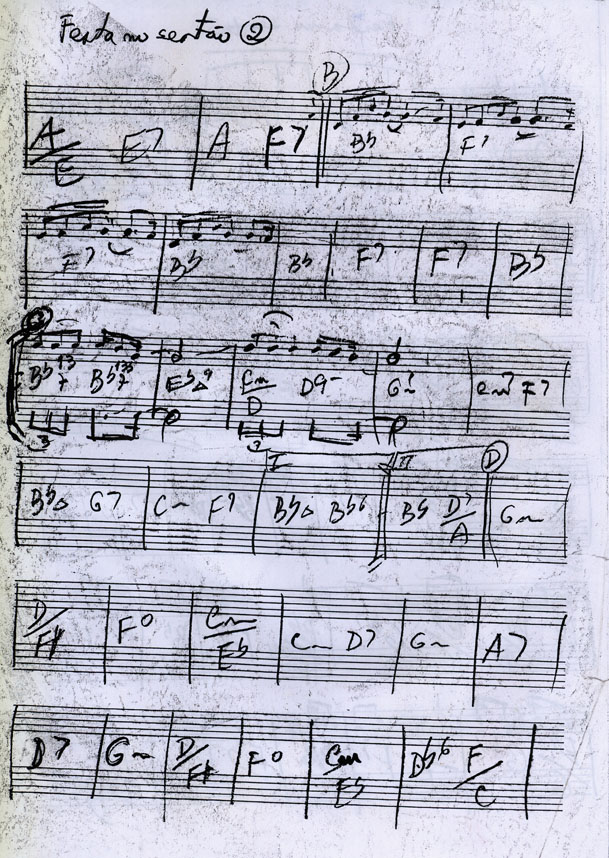 Festa no sertão ②
B
A/E E7 A F7 Bb F7
F7 Bb Bb F7 F7 Bb
Bb7 13 Bb7 Eb△9 Cm/D D9- G-7 Cm7 F7
3 3
I II D
Bb△ G7 C- F7 Bb△ Bb6 Bb D7/A G-
D/F# F° C-/Eb C- D7 G- A7
D7 G- D/F# F° Cm/Eb Db6 F/C